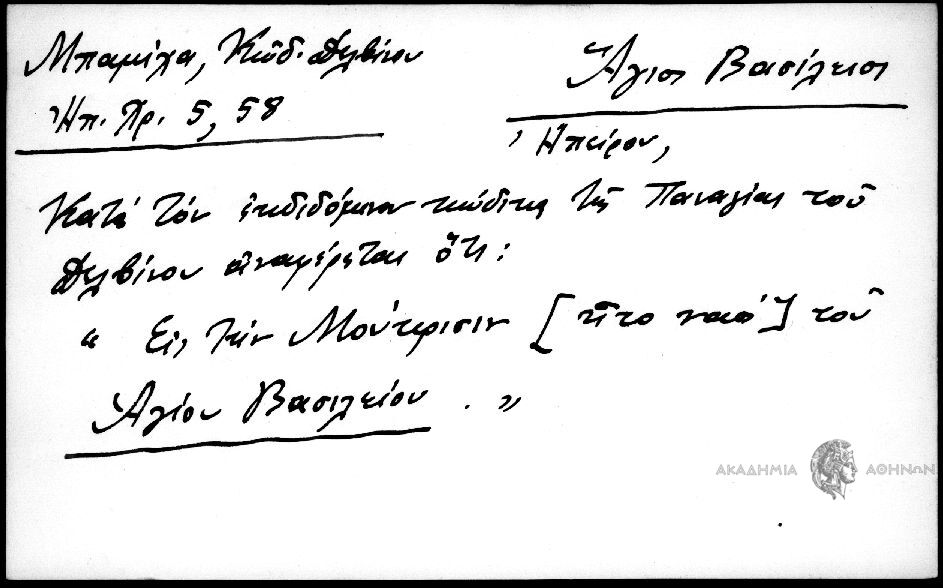 Μπαμίχα, Κώδ. Δελβίνου
Ἠπ. Χρ. 5, 58
Ἅγιος Βασίλειος
Ἠπείρου,
Κατὰ τόν ἐκδιδόμενον κώδικα τῆς Παναγίας τοῦ
Δελβίνου ἀναφέρεται ὅτι:
“ Εἰς τὴν Μούτζισιν [ ναό] τοῦ
Ἁγίου Βασιλείου . ”
ΑΚΑΔΗΜΙΑ ΑΘΗΝΩΝ